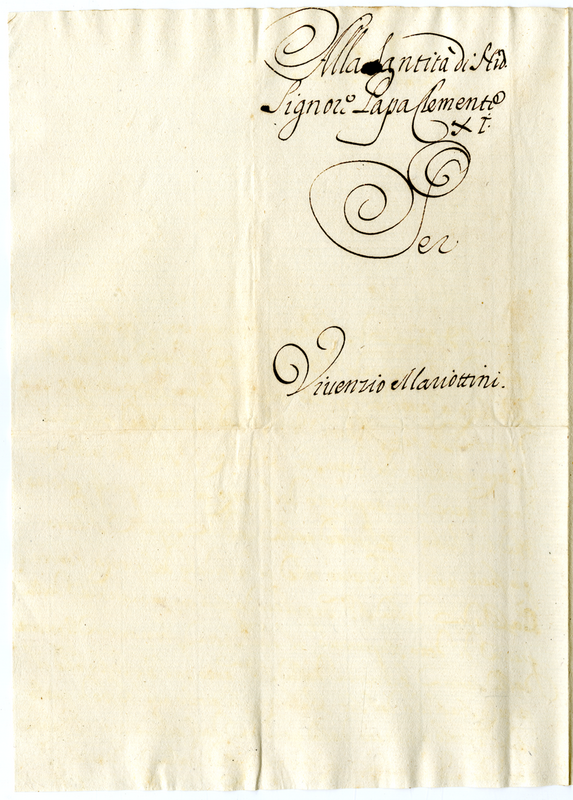 Alla Santità di Nro.
Signor.e Papa Clemente
XI.
Per
Viuenzio Mariottini.